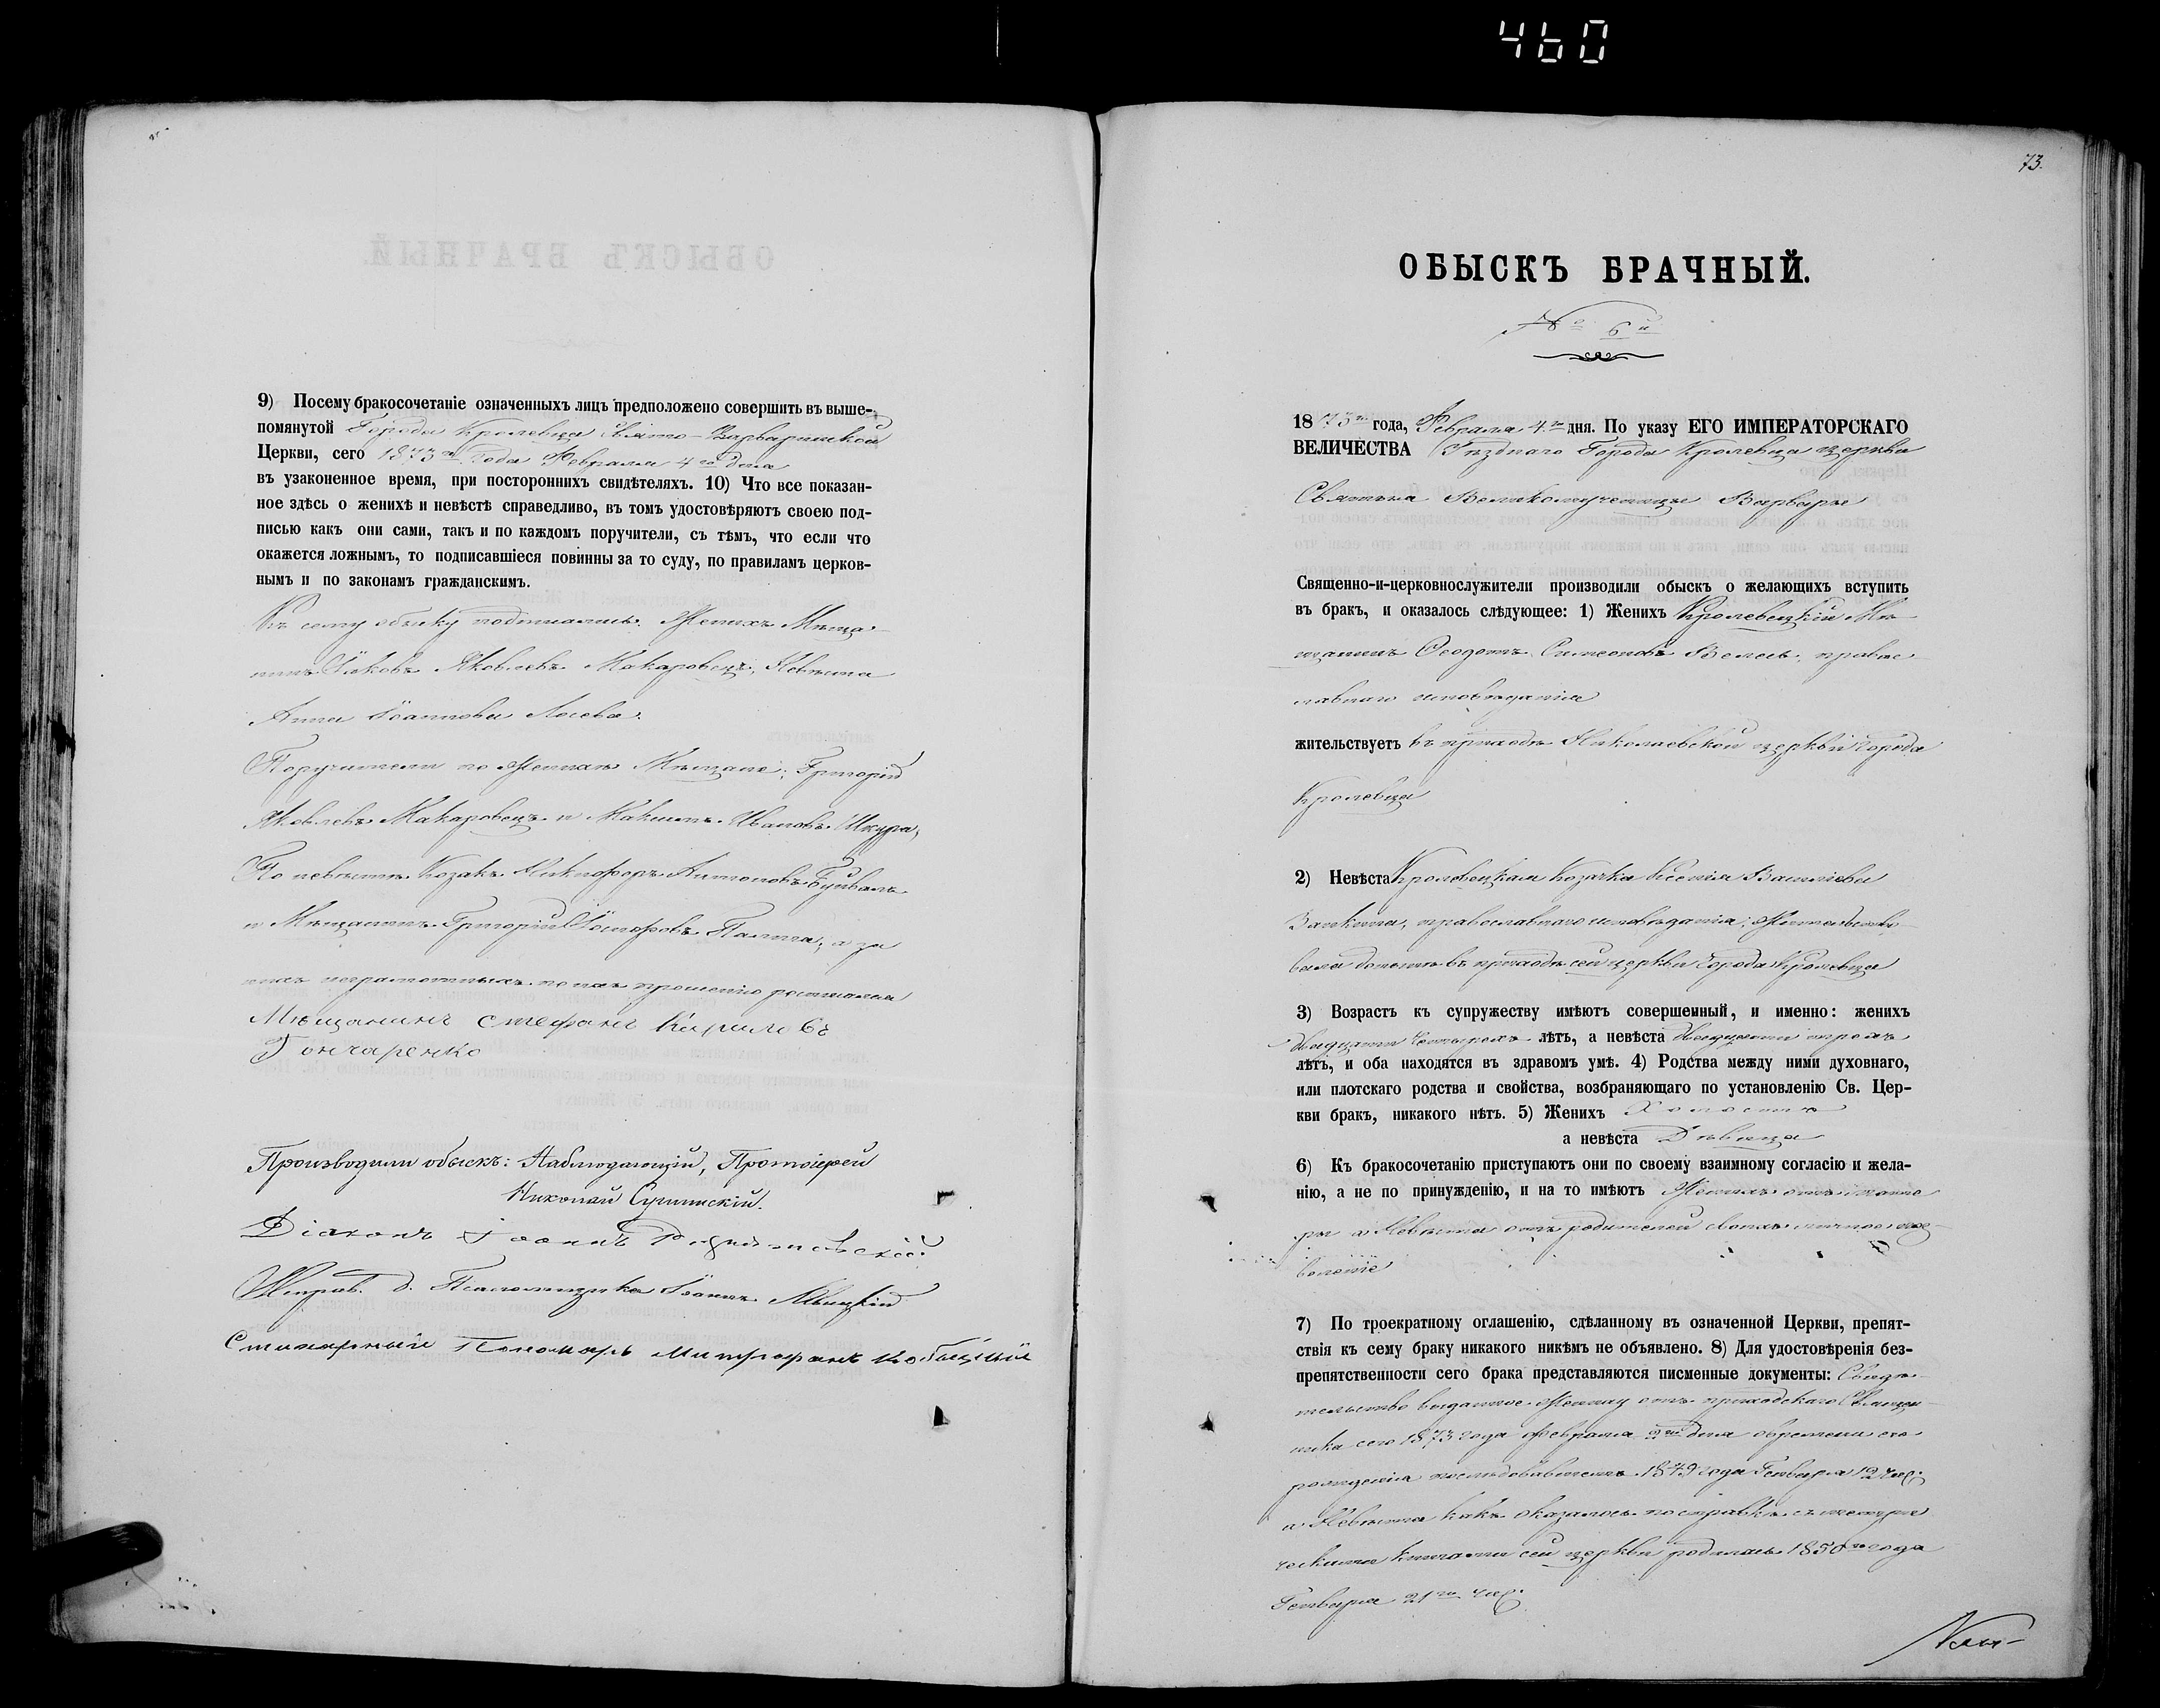 460
9) Посему бракосочетаніе означенныхъ лицъ предположено совершить въ выше-
помянутой Города Кролевца Свято-Варваринской
Церкви, сего 1873го Года Февраля 4го дня
въ узаконенное время, при постороннихъ свидѣтеляхъ. 10) Что все показан-
ное здѣсь о женихѣ и невѣстѣ справедливо, въ томъ удостовѣряютъ своею под-
писью какъ они сами, такъ и по каждомъ поручители, съ тѣмъ, что если что
окажется ложнымъ, то подписавшіеся повинны за то суду, по правиламъ церков-
нымъ и по законамъ гражданскимъ.
Къ сему обыску подписались: Женихъ Мѣща-
нинъ Яковъ Яковлевъ Макаровецъ, Невѣста
Анна Іоаннова Лосева.
Поручители по Женихѣ Мѣщане: Григорій
Яковлевъ Макаровецъ и Максимъ Ивановъ Шкура,
По невѣстѣ Козакъ Никифоръ Антоновъ
и Мѣщанинъ Григорій Іосифовъ а за
нихъ неграмотныхъ по ихъ прошенію росписался
Мѣщанинъ Стефанъ Кириловъ
Гончаренко
Производили обыскъ: Наблюдающій, Протоіерей
Николай
Діаконъ Іоаннъ
Исправ. д. Псаломщика Іоаннъ
Стихарный Пономарь Митрофанъ
73.
ОБЫСКЪ БРАЧНЫЙ.
№ 6й
1873го года, Февраля 4го дня. По указу ЕГО ИМПЕРАТОРСКАГО
ВЕЛИЧЕСТВА Уѣзднаго Города Кролевца церкви
Святыя Великомученицы Варвары
Священно-и-церковнослужители производили обыскъ о желающихъ вступить
въ бракъ, и оказалось слѣдующее: 1) Женихъ Кролевецкій Мѣ-
щанинъ Ѳеодотъ Симеоновъ правос-
лавнаго исповѣданія
жительствуетъ въ приходѣ Николаевской церкви города
Кролевца
2) Невѣста Кролевецкая Козачка Ксенія Василіева
православнаго исповѣданія; Жительство-
вала донынѣ въ приходѣ сей церкви города Кролевца
3) Возрастъ къ супружеству имѣютъ совершенный, и именно: женихъ
двадцати четырехъ лѣтъ, а невѣста двадцати трехъ
лѣтъ, и оба находятся въ здравомъ умѣ. 4) Родства между ними духовнаго,
или плотскаго родства и свойства, возбраняющаго по установленію Св. Цер-
кви бракъ, никакого нѣтъ. 5) Женихъ Холостъ
а невѣста Дѣвица
6) Къ бракосочетанію приступаютъ они по своему взаимному согласію и жела-
нію, а не по принужденію, и на то имѣютъ Женихъ отъ мате-
ри а Невѣста отъ родителей своихъ личное поз-
воленіе
7) По троекратному оглашенію, сдѣланному въ означенной Церкви, препят-
ствія къ сему браку никакого никѣмъ не объявлено. 8) Для удостовѣренія без-
препятственности сего брака представляются писменные документы: Свидѣ-
тельство выданное Жениху отъ приходскаго Священ-
ника сего 1873 года Февраля 2го дня о времени его
рожденія послѣдовавшемъ 1849 года Генваря 19 чис:
а Невѣста какъ оказалось по справкѣ съ метри-
ческими книгами сей церкви родилась 1850го года
Генваря 21го чис: